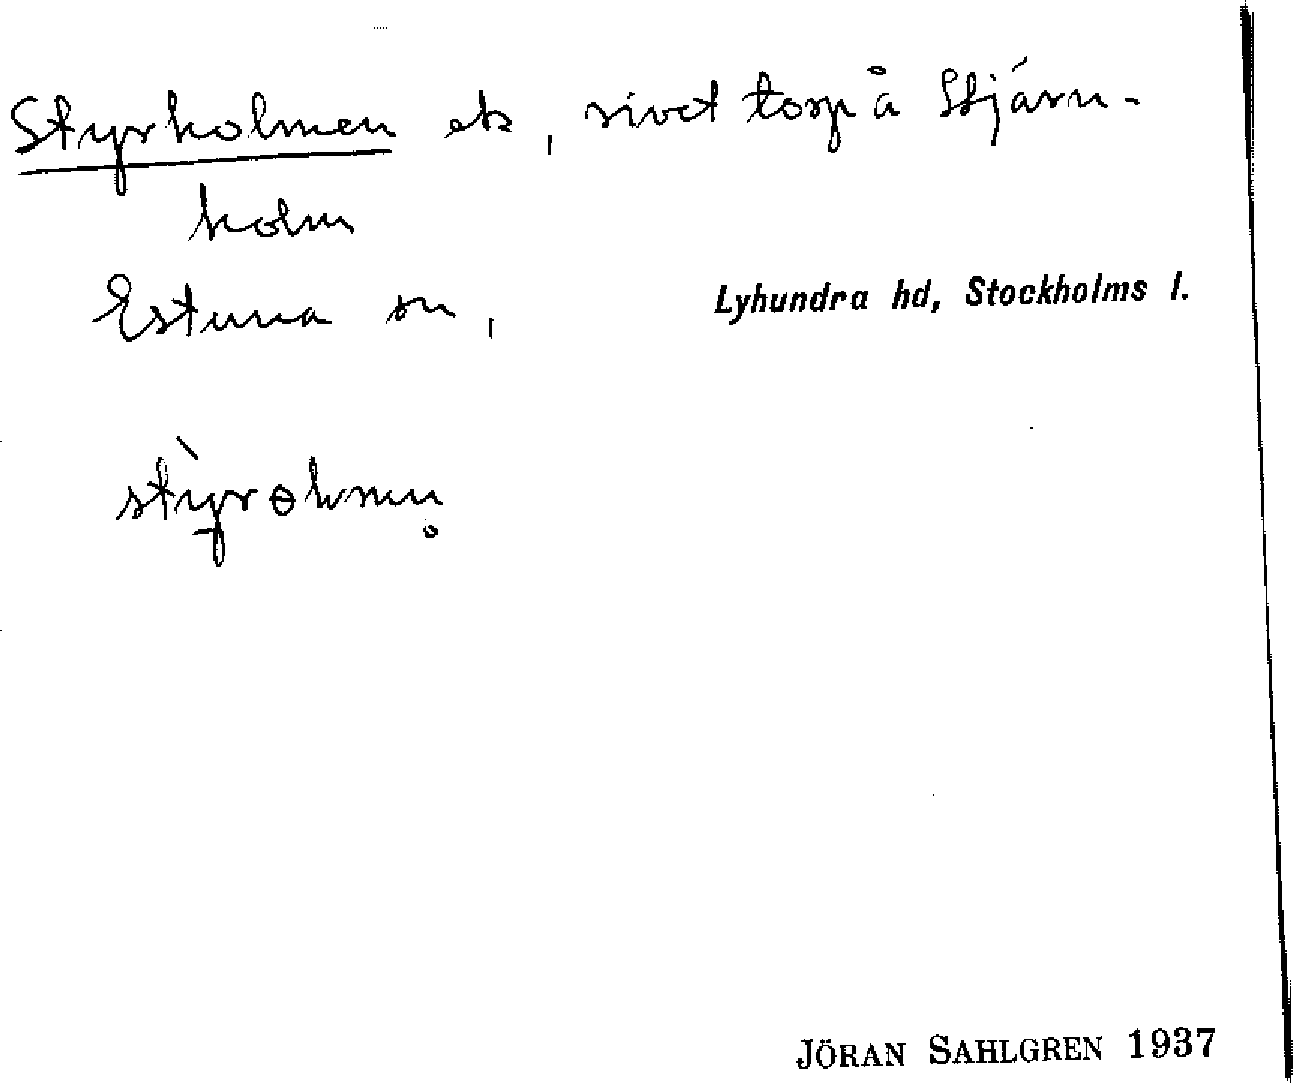 Styrholmen ek, rivet torp å Stjärn-
holm
Estuna sn, Lyhundra hd, Stockholms l.
JÖRAN SAHLGREN 1937